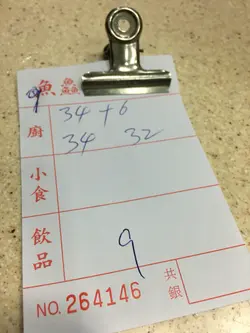 9 魚鱻
廚 34 + 6
34 32
小食
飲品 9
共銀
NO. 264146